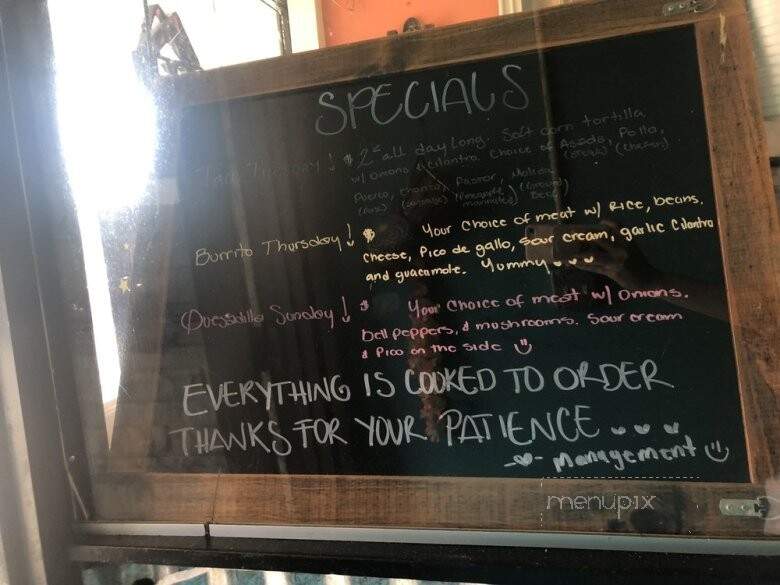 SPECIALS
Taco Tuesday! $2 all day long. Soft corn tortilla
w/ onions & cilantro choice of Asada, Pollo,
(steak) (chicken)
Puerco, chorizo, Pastor, Molida
(Pork) (sausage) (Pineapple marinated) (Ground Beef)
Burrito Thursday! $ Your choice of meat w/ Rice, beans,
cheese, Pico de gallo, sour cream, garlic cilantro
and guacamole. Yummy
Quesadilla Sunday! $ Your choice of meat w/ onions,
bell peppers, & mushrooms. Sour cream
& Pico on the side
EVERYTHING IS COOKED TO ORDER
THANKS FOR YOUR PATIENCE...
- Management
menupix